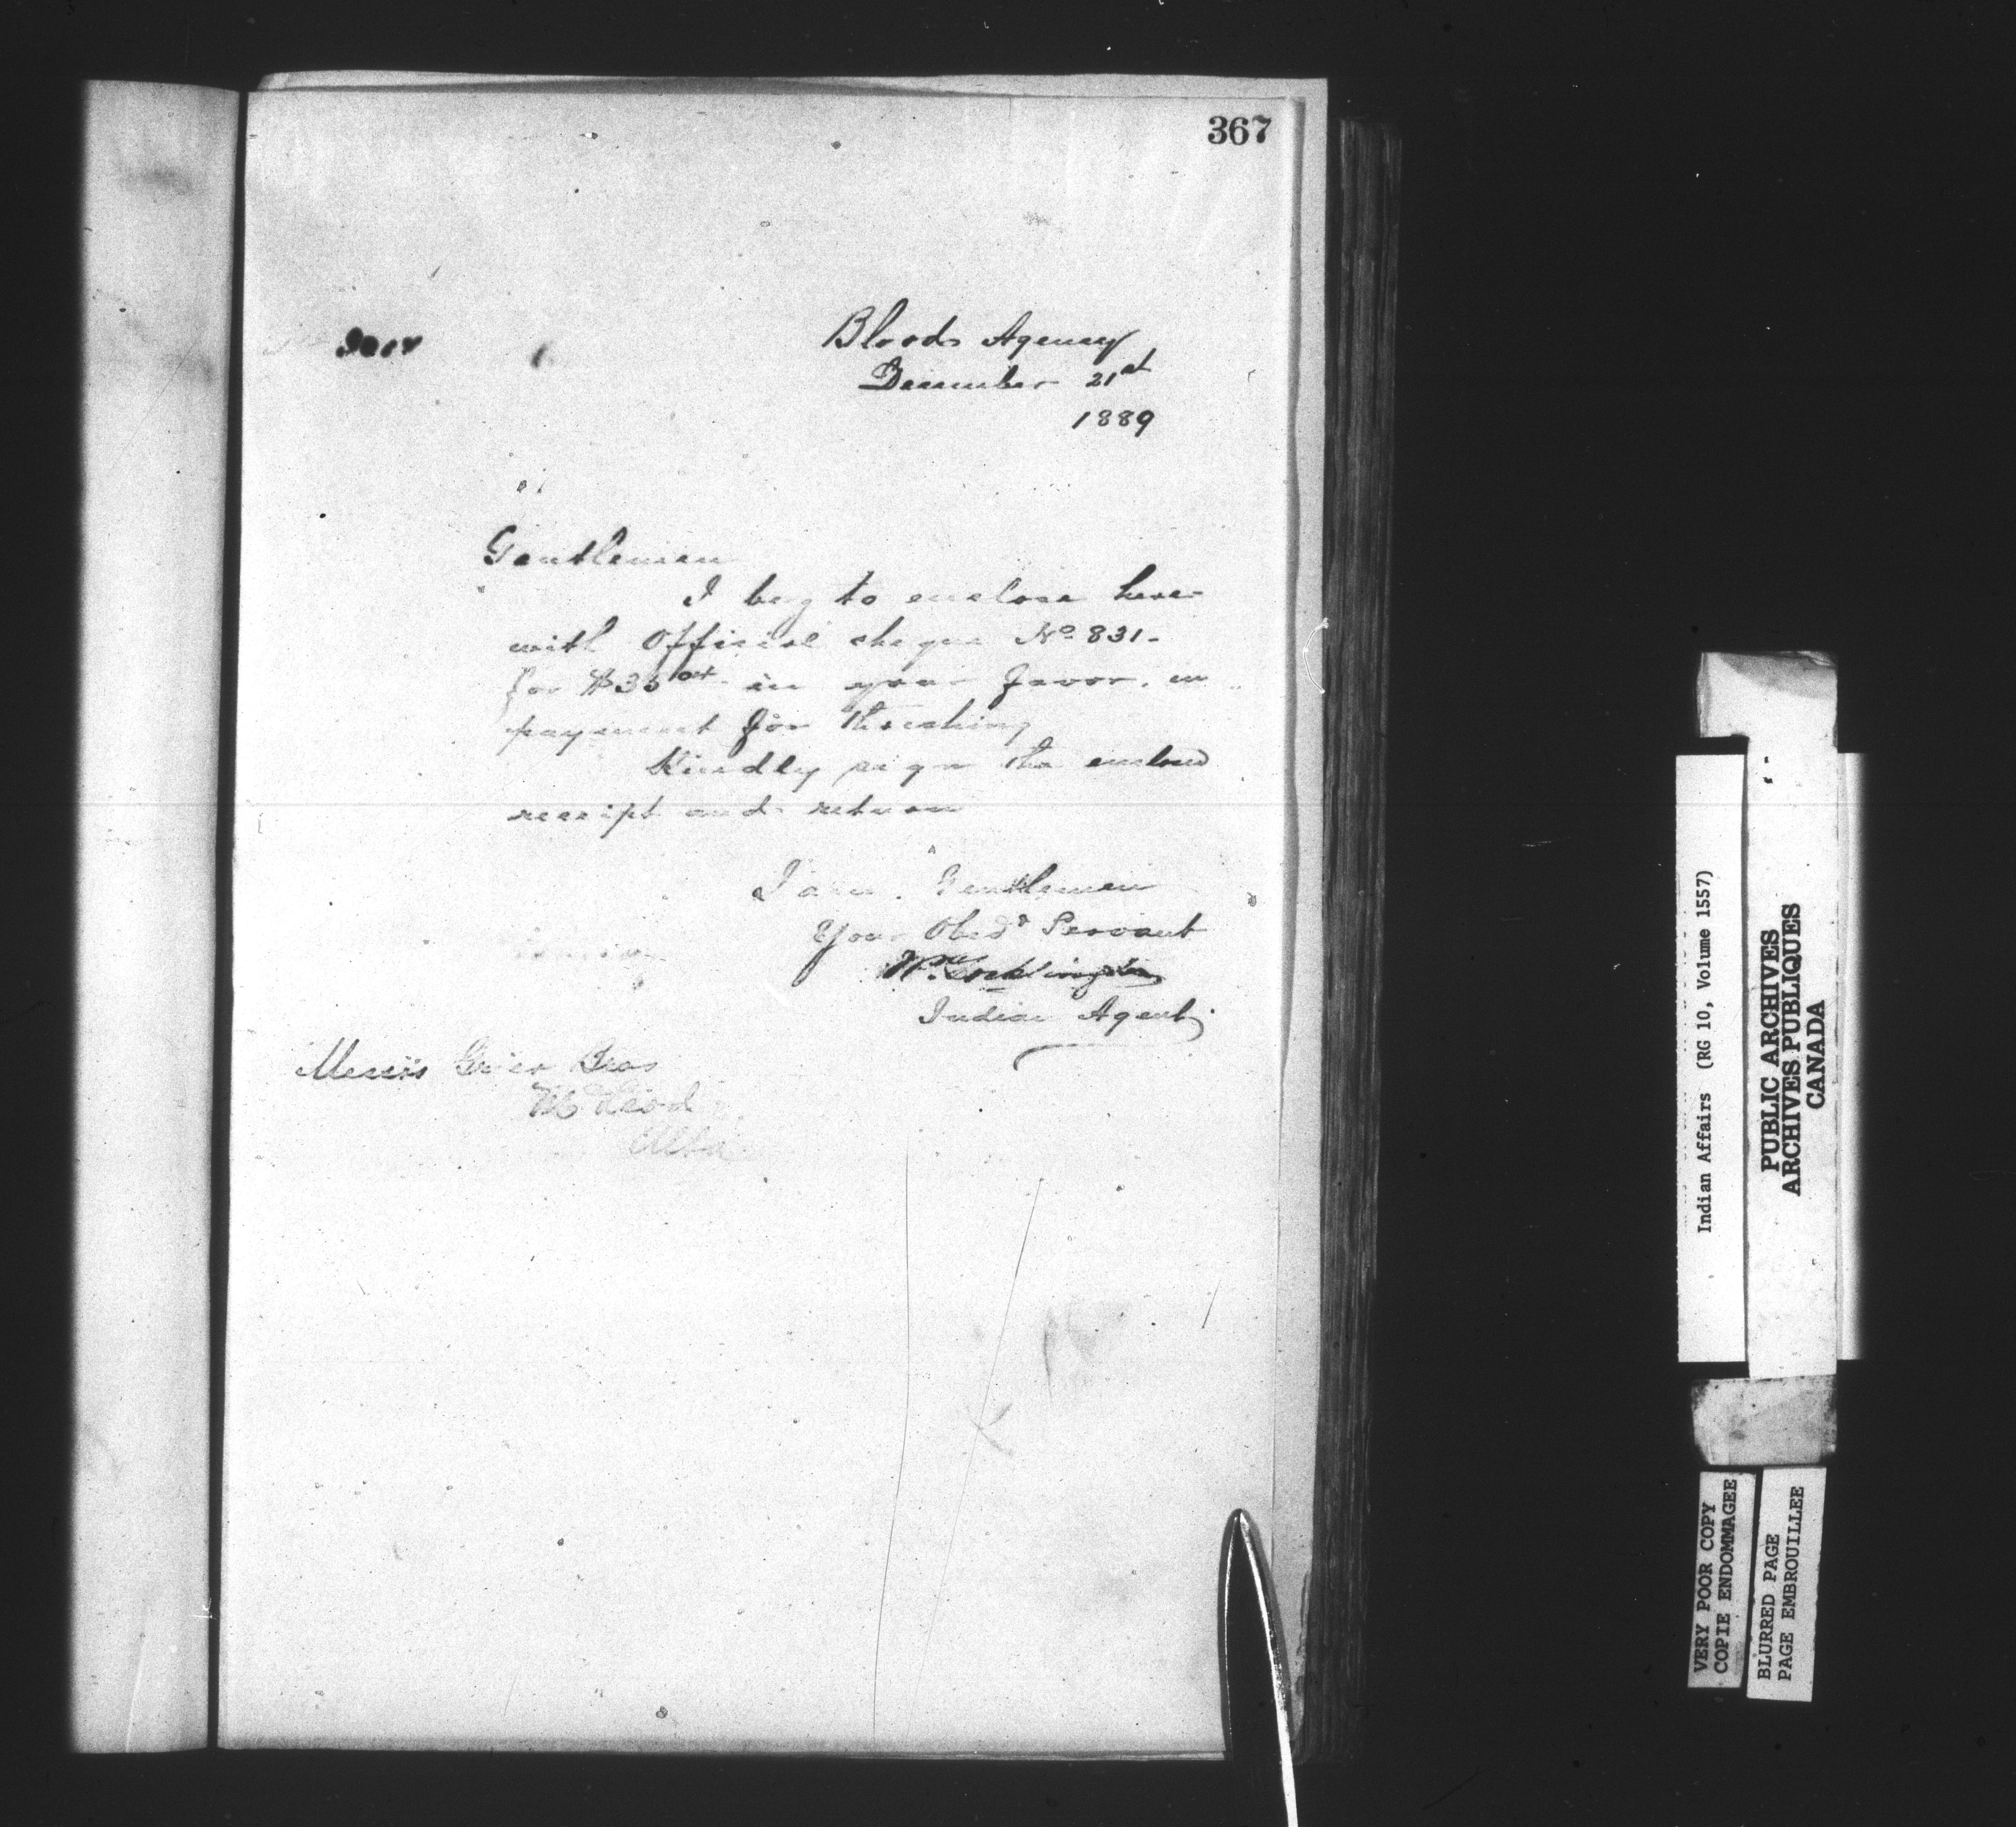 367
Bloods Agency
December 21st
1889
Gentlemen
I beg to enclose here-
with Official cheque No. 831-
for $35 in your favor, in
payment for threshing
Kindly sign the enclosed
receipt and return
I am, Gentlemen
Your Obedt Servant
Wm Pocklington
Indian Agent
Messrs Grier Bros
McLeod
Alba
Indian Affairs (RG 10, Volume 1557)
PUBLIC ARCHIVES
ARCHIVES PUBLIQUES
CANADA
VERY POOR COPY
COPIE ENDOMMAGEE
BLURRED PAGE
PAGE EMBROUILLEE